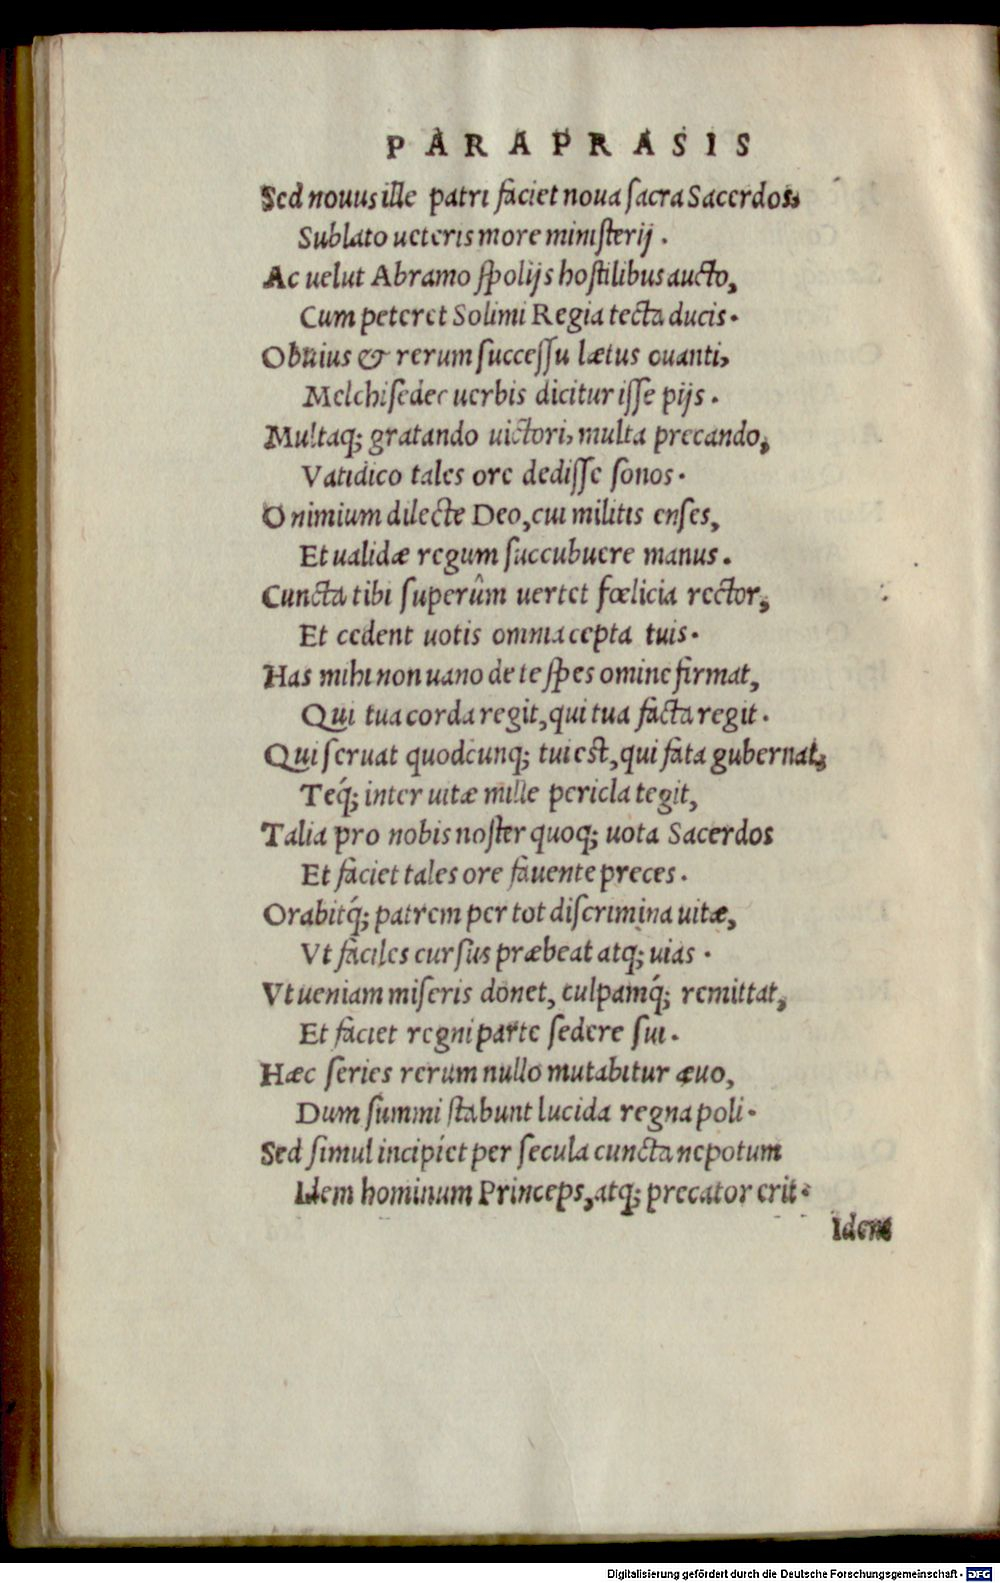 PARAPRASIS
Sed nouus ille patri faciet noua sacra Sacerdos,
Sublato ueteris more ministerij.
Ac uelut Abramo spolijs hostilibus aucto,
Cum peteret Solimi Regia tecta ducis.
Obuius & rerum successu lætus ouanti,
Melchisedec uerbis dicitur isse pijs.
Multaq; gratando uictori, multa precando,
Vatidico tales ore dedisse sonos.
O nimium dilecte Deo, cui militis enses,
Et ualidæ regum succubuere manus.
Cuncta tibi superûm uertet fœlicia rector,
Et cedent uotis omnia cepta tuis.
Has mihi non uano de te spes omine firmat,
Qui tua corda regit, qui tua facta regit.
Qui seruat quodcunq; tui est, qui fata gubernat,
Teq́; inter uitæ mille pericla tegit,
Talia pro nobis noster quoq; uota Sacerdos
Et faciet tales ore fauente preces.
Orabitq́; patrem per tot discrimina uitæ,
Vt faciles cursus præbeat atq; uias.
Vt ueniam miseris donet, culpamq́; remittat,
Et faciet regni parte sedere sui.
Hæc series rerum nullo mutabitur æuo,
Dum summi stabunt lucida regna poli.
Sed simul incipiet per secula cuncta nepotum
Idem hominum Princeps, atq; precator erit.
Idem
Digitalisierung gefördert durch die Deutsche Forschungsgemeinschaft - DFG